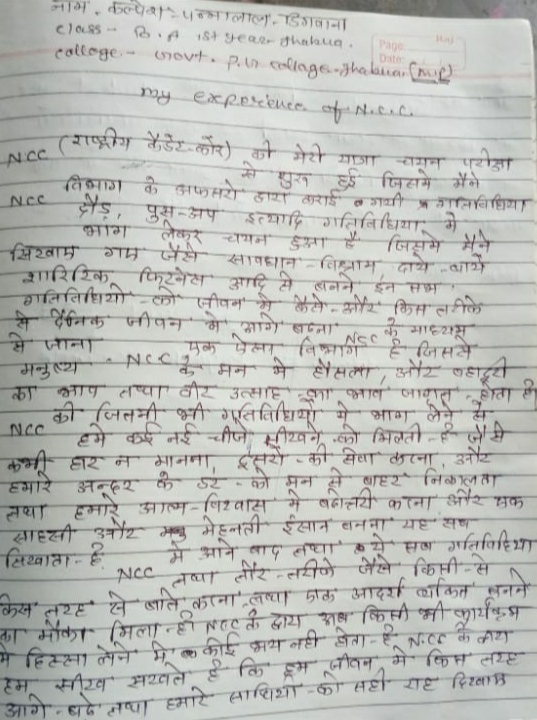 नाम - कल्पेश - पन्नालाल - डिगवाना
Class - B.A 1st year - Jhabua.
College - Govt. P.G college - Jhabua (M.P)
Page:
Date:
my experience of N.C.C.
NCC (राष्ट्रीय कैडेट-कौर) की मेरी यात्रा चयन परीक्षा
से शुरू हुई जिसमे मैने
NCC विभाग के अफसरो द्वारा कराई गयी गतिविधिया
दौड़, पुस-अप इत्यादि गतिविधिया मे
भाग लेकर चयन हुआ है जिसमे मैने
सिखाय गय जैसे सावधान-विश्राम, दाये-बायें
शारिरिक फिटनेस आदि से बनने इन सभ
गतिविधियो-को जीवन मे कैसे-और किस तरीके
से दैनिक जीवन मे आगे बढना NCC के माध्यम
से जाना एक ऐसा विभाग है जिससे
मनुष्य - NCC के मन मे हौसला, और बहादुरी
का भाव तथा वीर उत्साह का भाव जागृत होता है
NCC की जितनी भी गतिविधियो मे भाग लेने से
हमे कई नई-चीजे सीखने-को मिलती-है जैसे
कभी हार न मानना, दुसरो-की सेवा करना, और
हमारे अन्दर के डर-को मन से बाहर निकालता
तथा हमारे आत्म-विश्वास मे बढोत्तरी करना और एक
साहसी और मेहनती इंसान बनना यह सब
सिखाता-है.
NCC मे आने बाद तथा ये सब गतिविधिया
तथा तौर-तरीके जैसे किसी-से
किस तरह से बाते करना-तथा एक आदर्श व्यक्ति बनने
का मौका मिला-है NCC के द्वारा अब किसी भी कार्यक्रम
मे हिस्सा लेने मे कोई भय नही होता-है NCC के द्वारा
हम सीख सखते है कि हम जीवन मे किस तरह
आगे-बढे तथा हमारे साथियो-को सही राह दिखाय